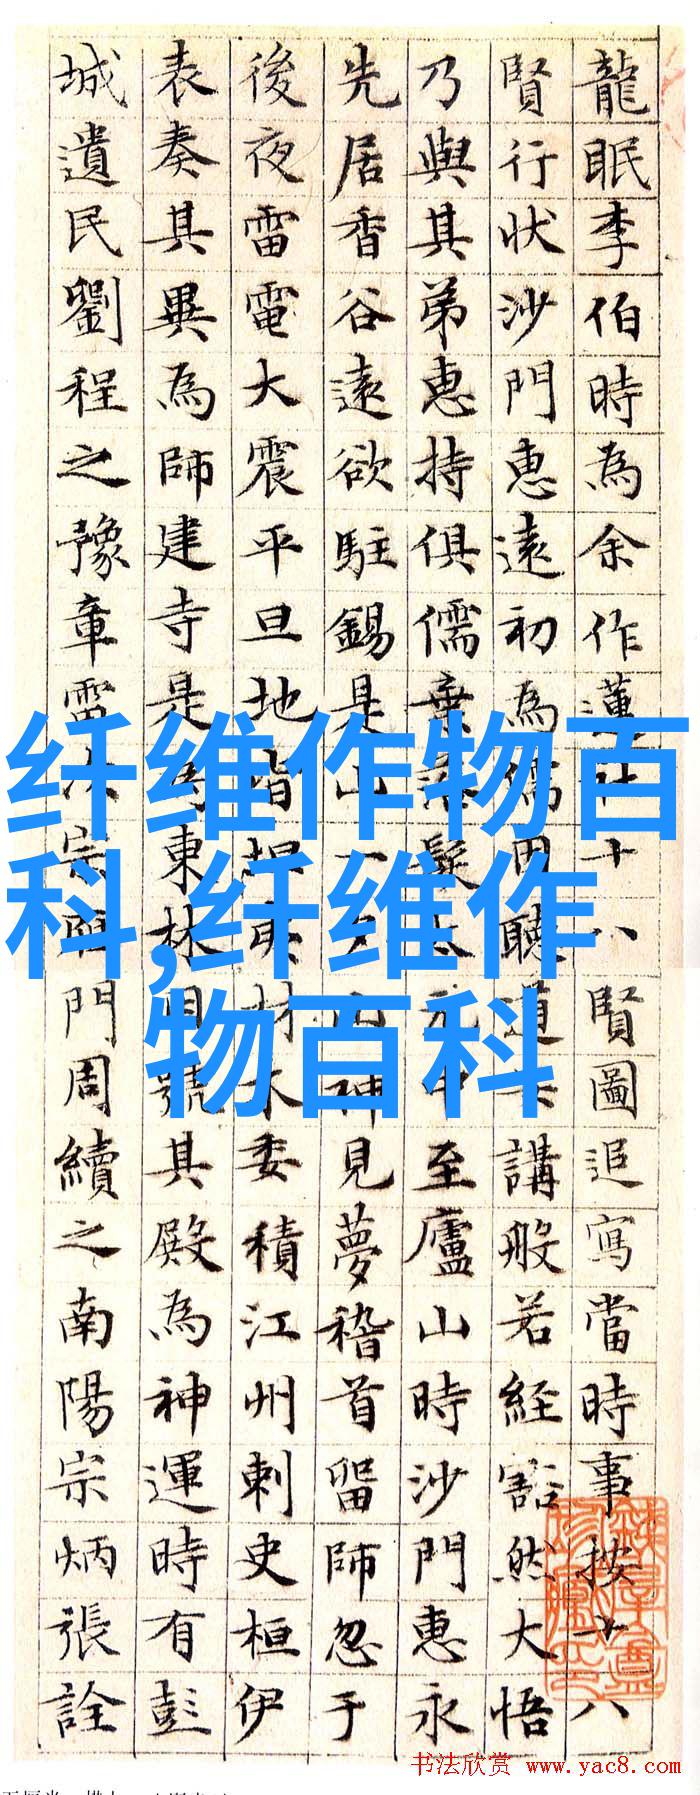 龍眠李伯時為余作蓮社十八賢圖追寫當時事按十八
賢行狀沙門惠遠初為儒因聽道安講般若經豁然大悟
乃與其弟惠持俱儒棄落髮太元中至廬山時沙門惠永
先居香谷遠欲駐錫是山一夕山神見夢稽首留師忽于
後夜雷電大震平旦地皆坦夷材木委積江州刺史桓伊
表奏其異為師建寺是為東林因號其殿為神運時有彭
城遺民劉程之豫章雷次宗鴈門周續之南陽宗炳張詮
纤维作物百
科,纤维作
物百科
书法欣赏 www.yac8.com